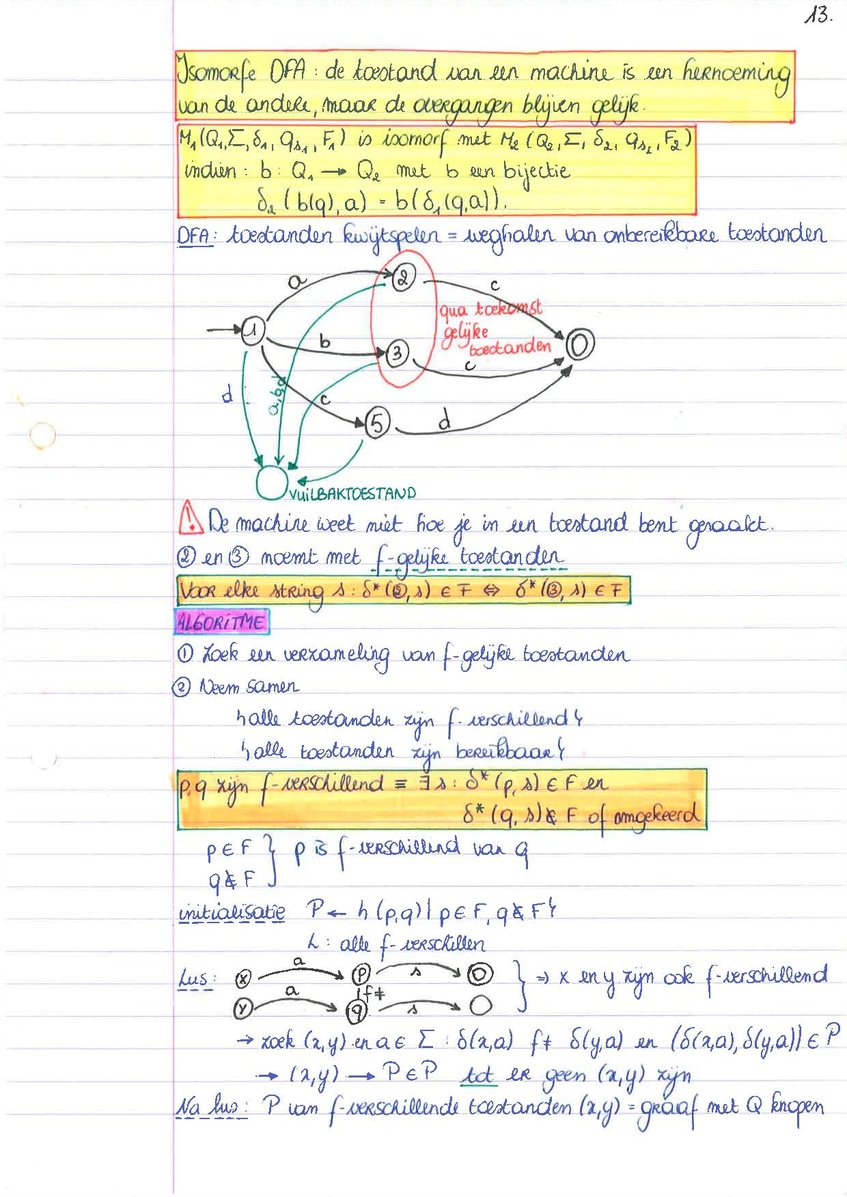 13.
Isomorfe DFA : de toestand van een machine is een hernoeming
van de andere, maar de overgangen blijven gelijk.
M₁(Q₁,Σ,δ₁,qs₁,F₁) is isomorf met M₂(Q₂,Σ,δ₂,qs₂,F₂)
indien : b : Q₁ → Q₂ met b een bijectie
δ₂(b(q),a) = b(δ₁(q,a)).
DFA: toestanden kwijtspelen = weghalen van onbereikbare toestanden
a
2
c
qua toekomst
gelijke
toestanden
1
b
3
c
d
a,b,d
c
5
d
VUILBAKTOESTAND
! De machine weet niet hoe je in een toestand bent geraakt.
② en ③ noemt met f-gelijke toestanden
Voor elke string s : δ*(②,s) ∈ F ⇔ δ*(③,s) ∈ F
ALGORITME
① Zoek een verzameling van f-gelijke toestanden
② Neem samen
{alle toestanden zijn f-verschillend}
{alle toestanden zijn bereikbaar}
p,q zijn f-verschillend ≡ ∃ s : δ*(p,s) ∈ F en
δ*(q,s) ∉ F of omgekeerd
p ∈ F } p is f-verschillend van q
q ∉ F
initialisatie P ← {(p,q) | p ∈ F, q ∉ F}
L: alle f-verschillen
Lus: x a p s } ⇒ x en y zijn ook f-verschillend
f≠
y a q s
→ zoek (x,y) en a ∈ Σ : δ(x,a) f≠ δ(y,a) en (δ(x,a),δ(y,a)) ∈ P
→ (x,y) → P ∈ P tot er geen (x,y) zijn
Na lus: P van f-verschillende toestanden (x,y) = graaf met Q knopen